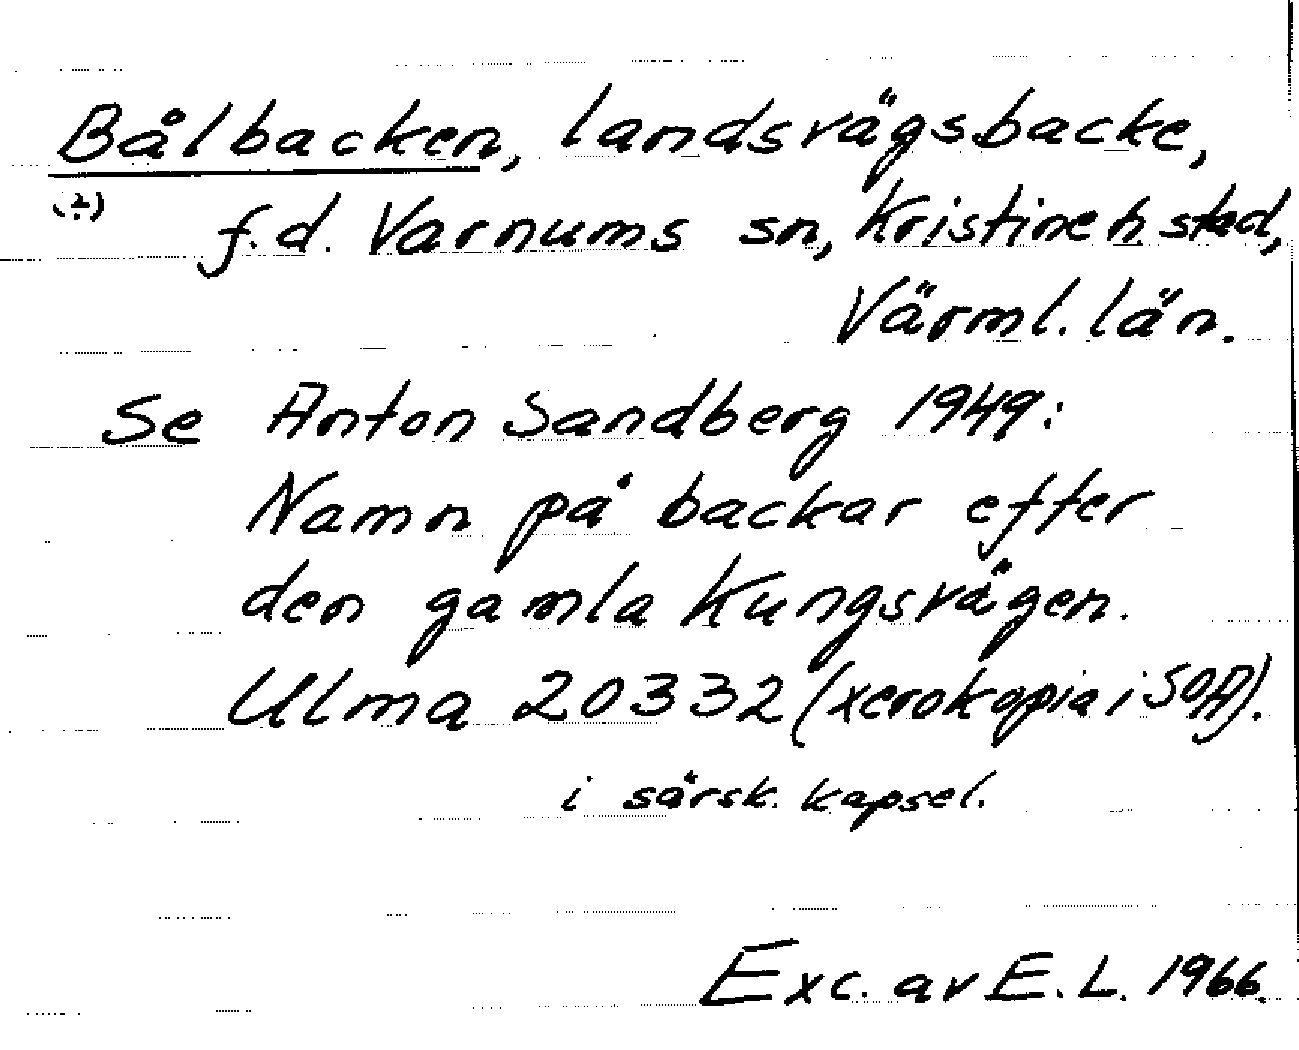 Bålbacken, landsvägsbacke,
f.d. Varnums sn, Kristineh. stad,
Värml. län.
Se Anton Sandberg 1949:
Namn på backar efter
den gamla Kungsvägen.
Ulma 20332 (xerokopia i SOA).
i särsk. kapsel.
Exc. av E. L. 1966.